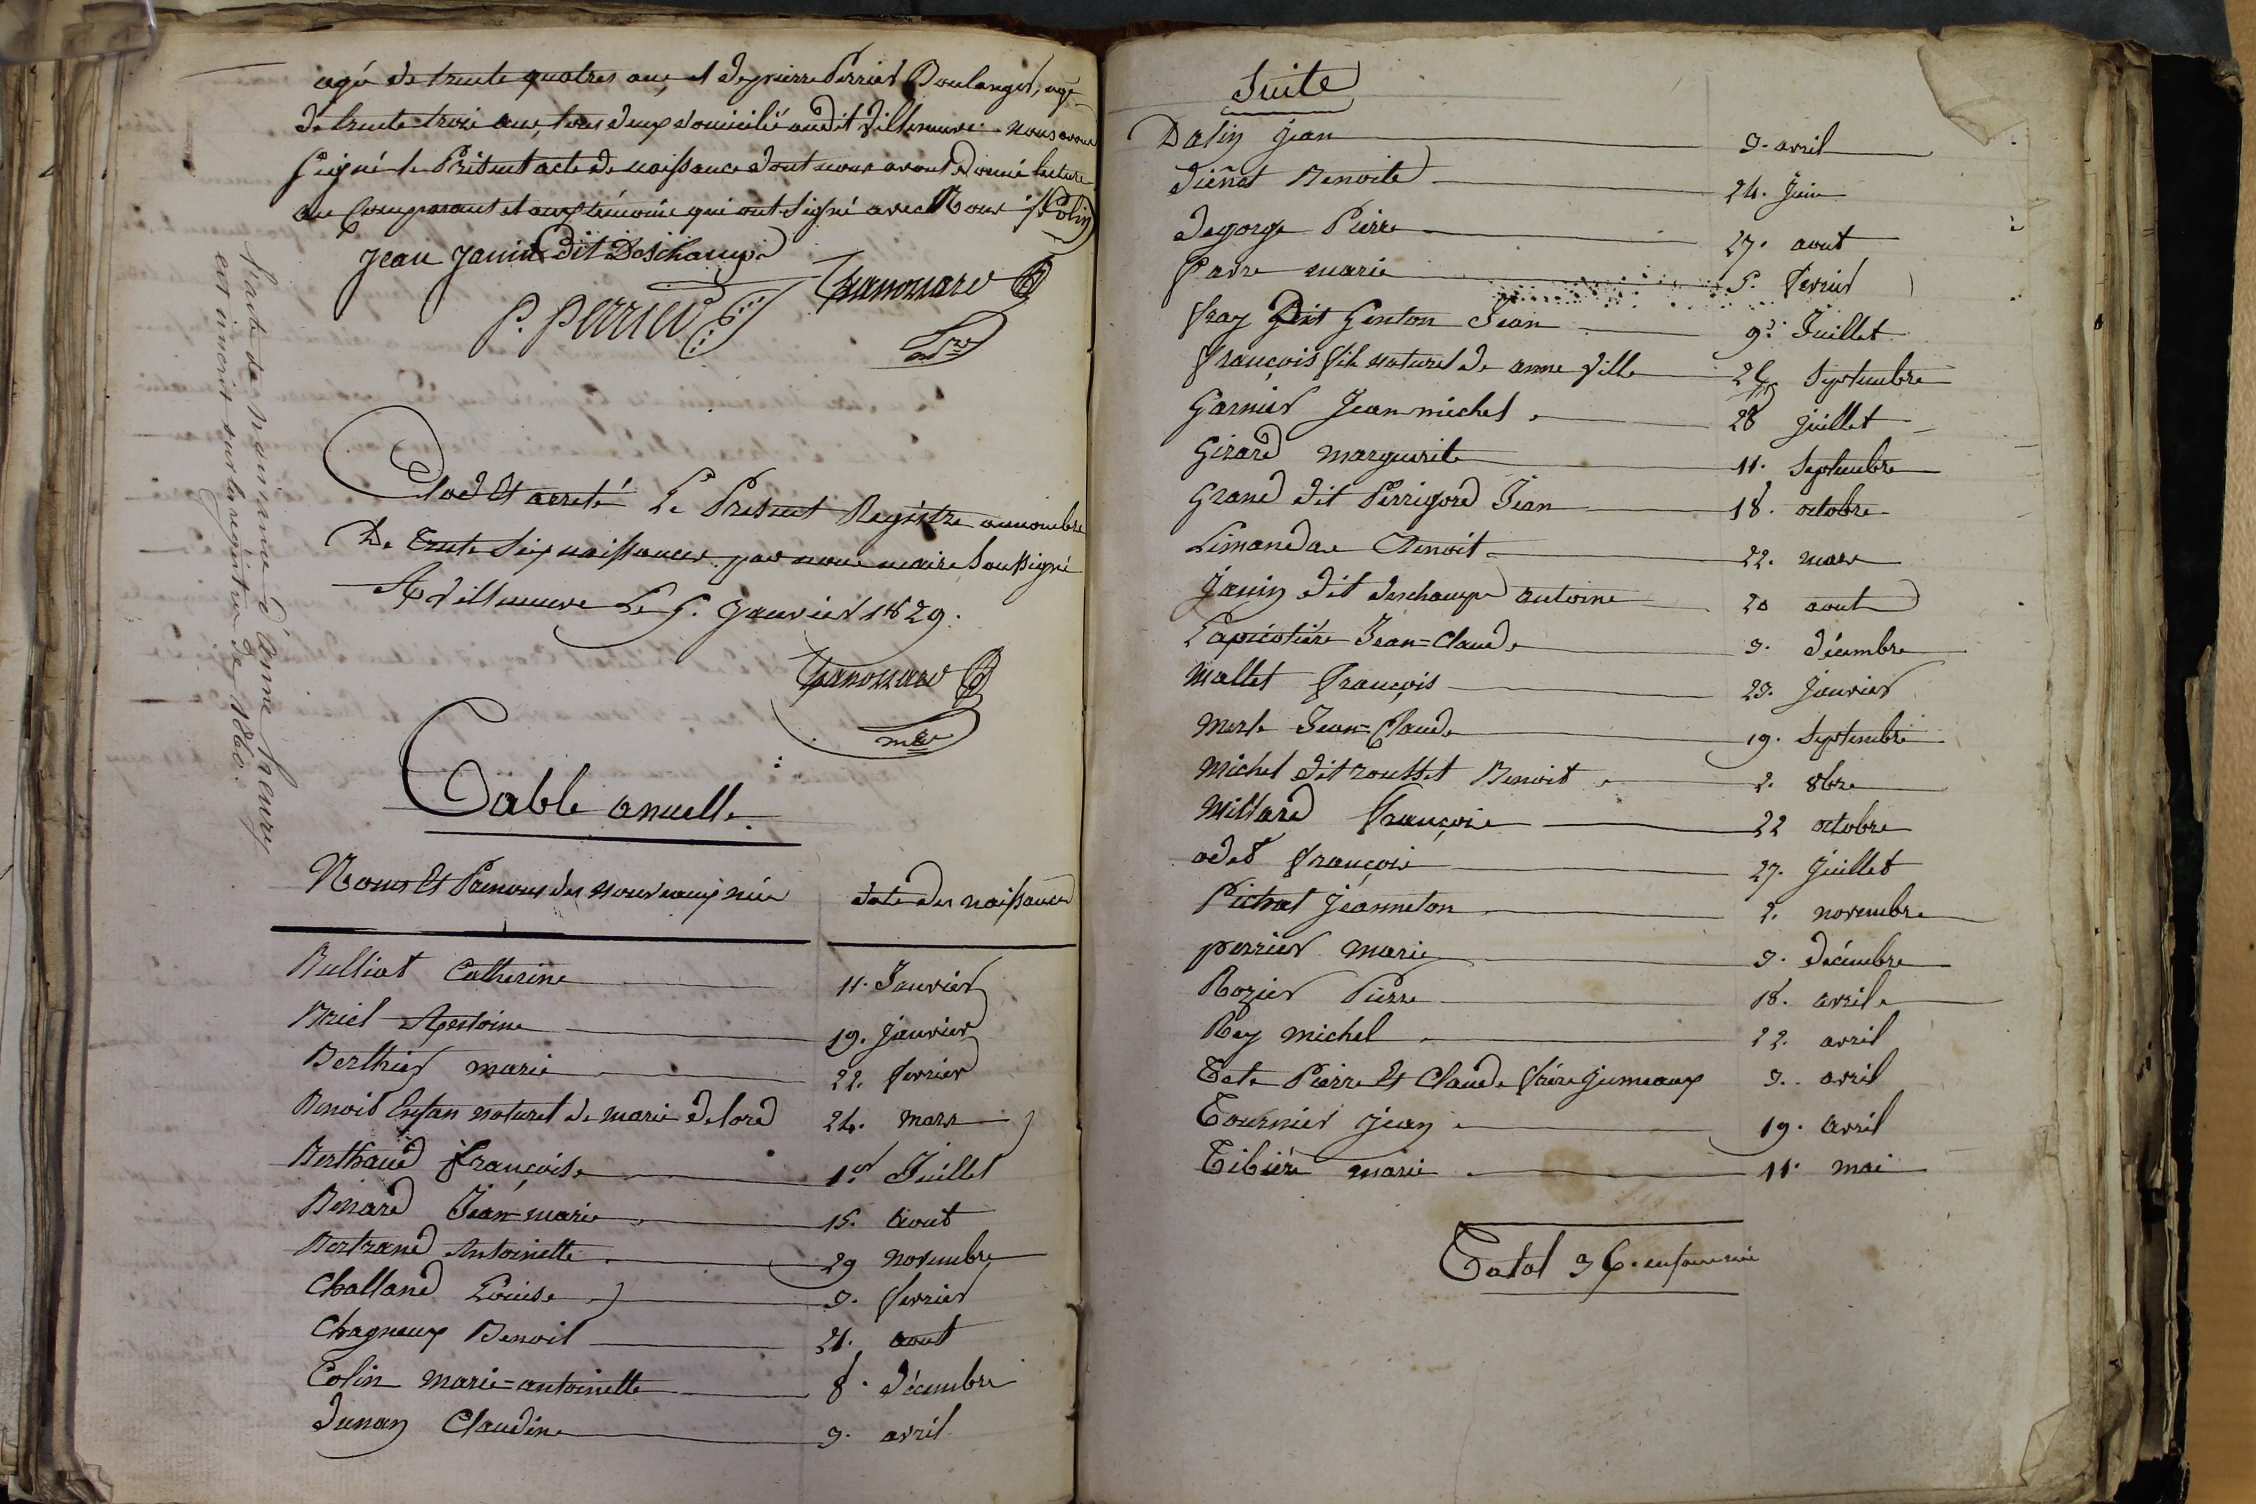 agé de trente quatres ans, et de pierre Perrier Boulanger, agé
de trente trois ans, tous deux domicilié audit Villeneuve. nous avons
signé le Présent acte de naissance dont nous avons donné lecture
au Comparant et aux témoins qui ont signé avec Nous
Jean Janin dit Deschamp
P. Perrier
Clos et arreté Le Present Registre au nombre
De trente six naissances par nous maire soussigné
A Villeneuve Le 5. Janvier 1829.
mre
l'acte de naissance d'anne
est inscrit sur le registre de 1860.
Table anuelle.
Noms et Prenoms des nouveaux nés date des naissances
Bulliat Catherine 11. Janvier
Briel Antoine 19. Janvier
Berthier marie 22. fevrier
Benoit Enfan naturel de marie delord 24. mars
Berthaud françoise 1er Juillet
Benard Jean-marie 15. Aout
Bertrand Antoinette 29 novembre
Challand Louise 3. fevrier
Chagneux Benoit 21. aout
Colin marie=antoinette 8. décembre
dunan Claudine 3. avril
Suite
Dalin jean 3. avril
Benoite 24. Juin
degorge Pierre 27. aout
favre marie 5. fevrier
fray Dit Genton Jean 9. Juillet
françois fils naturel de anne Ville 26 Septembre
Garnier Jean michel 28 juillet
Girard marguerite 11. Septembre
Grand dit Perrigord Jean 18. octobre
Benoit 22. mars
Janin dit deschamp antoine 20 aout
Lapicotière Jean=Claude 3. décembre
Mallet françois 23. janvier
Merle Jean=Claude 19. Septembre
Michel dit rousset Benoit 2. 8bre
Millard françois 22 octobre
odet françois 27. Juillet
Pichat Jeanneton 2. novembre
perrier marie 3. décembre
Rozier Pierre 18. avril
Rey michel 22. avril
Tete Pierre et Claude frère jumeaux 3. avril
Tournier jean 19. avril
Tibière marie 11. mai
Total 36. enfans